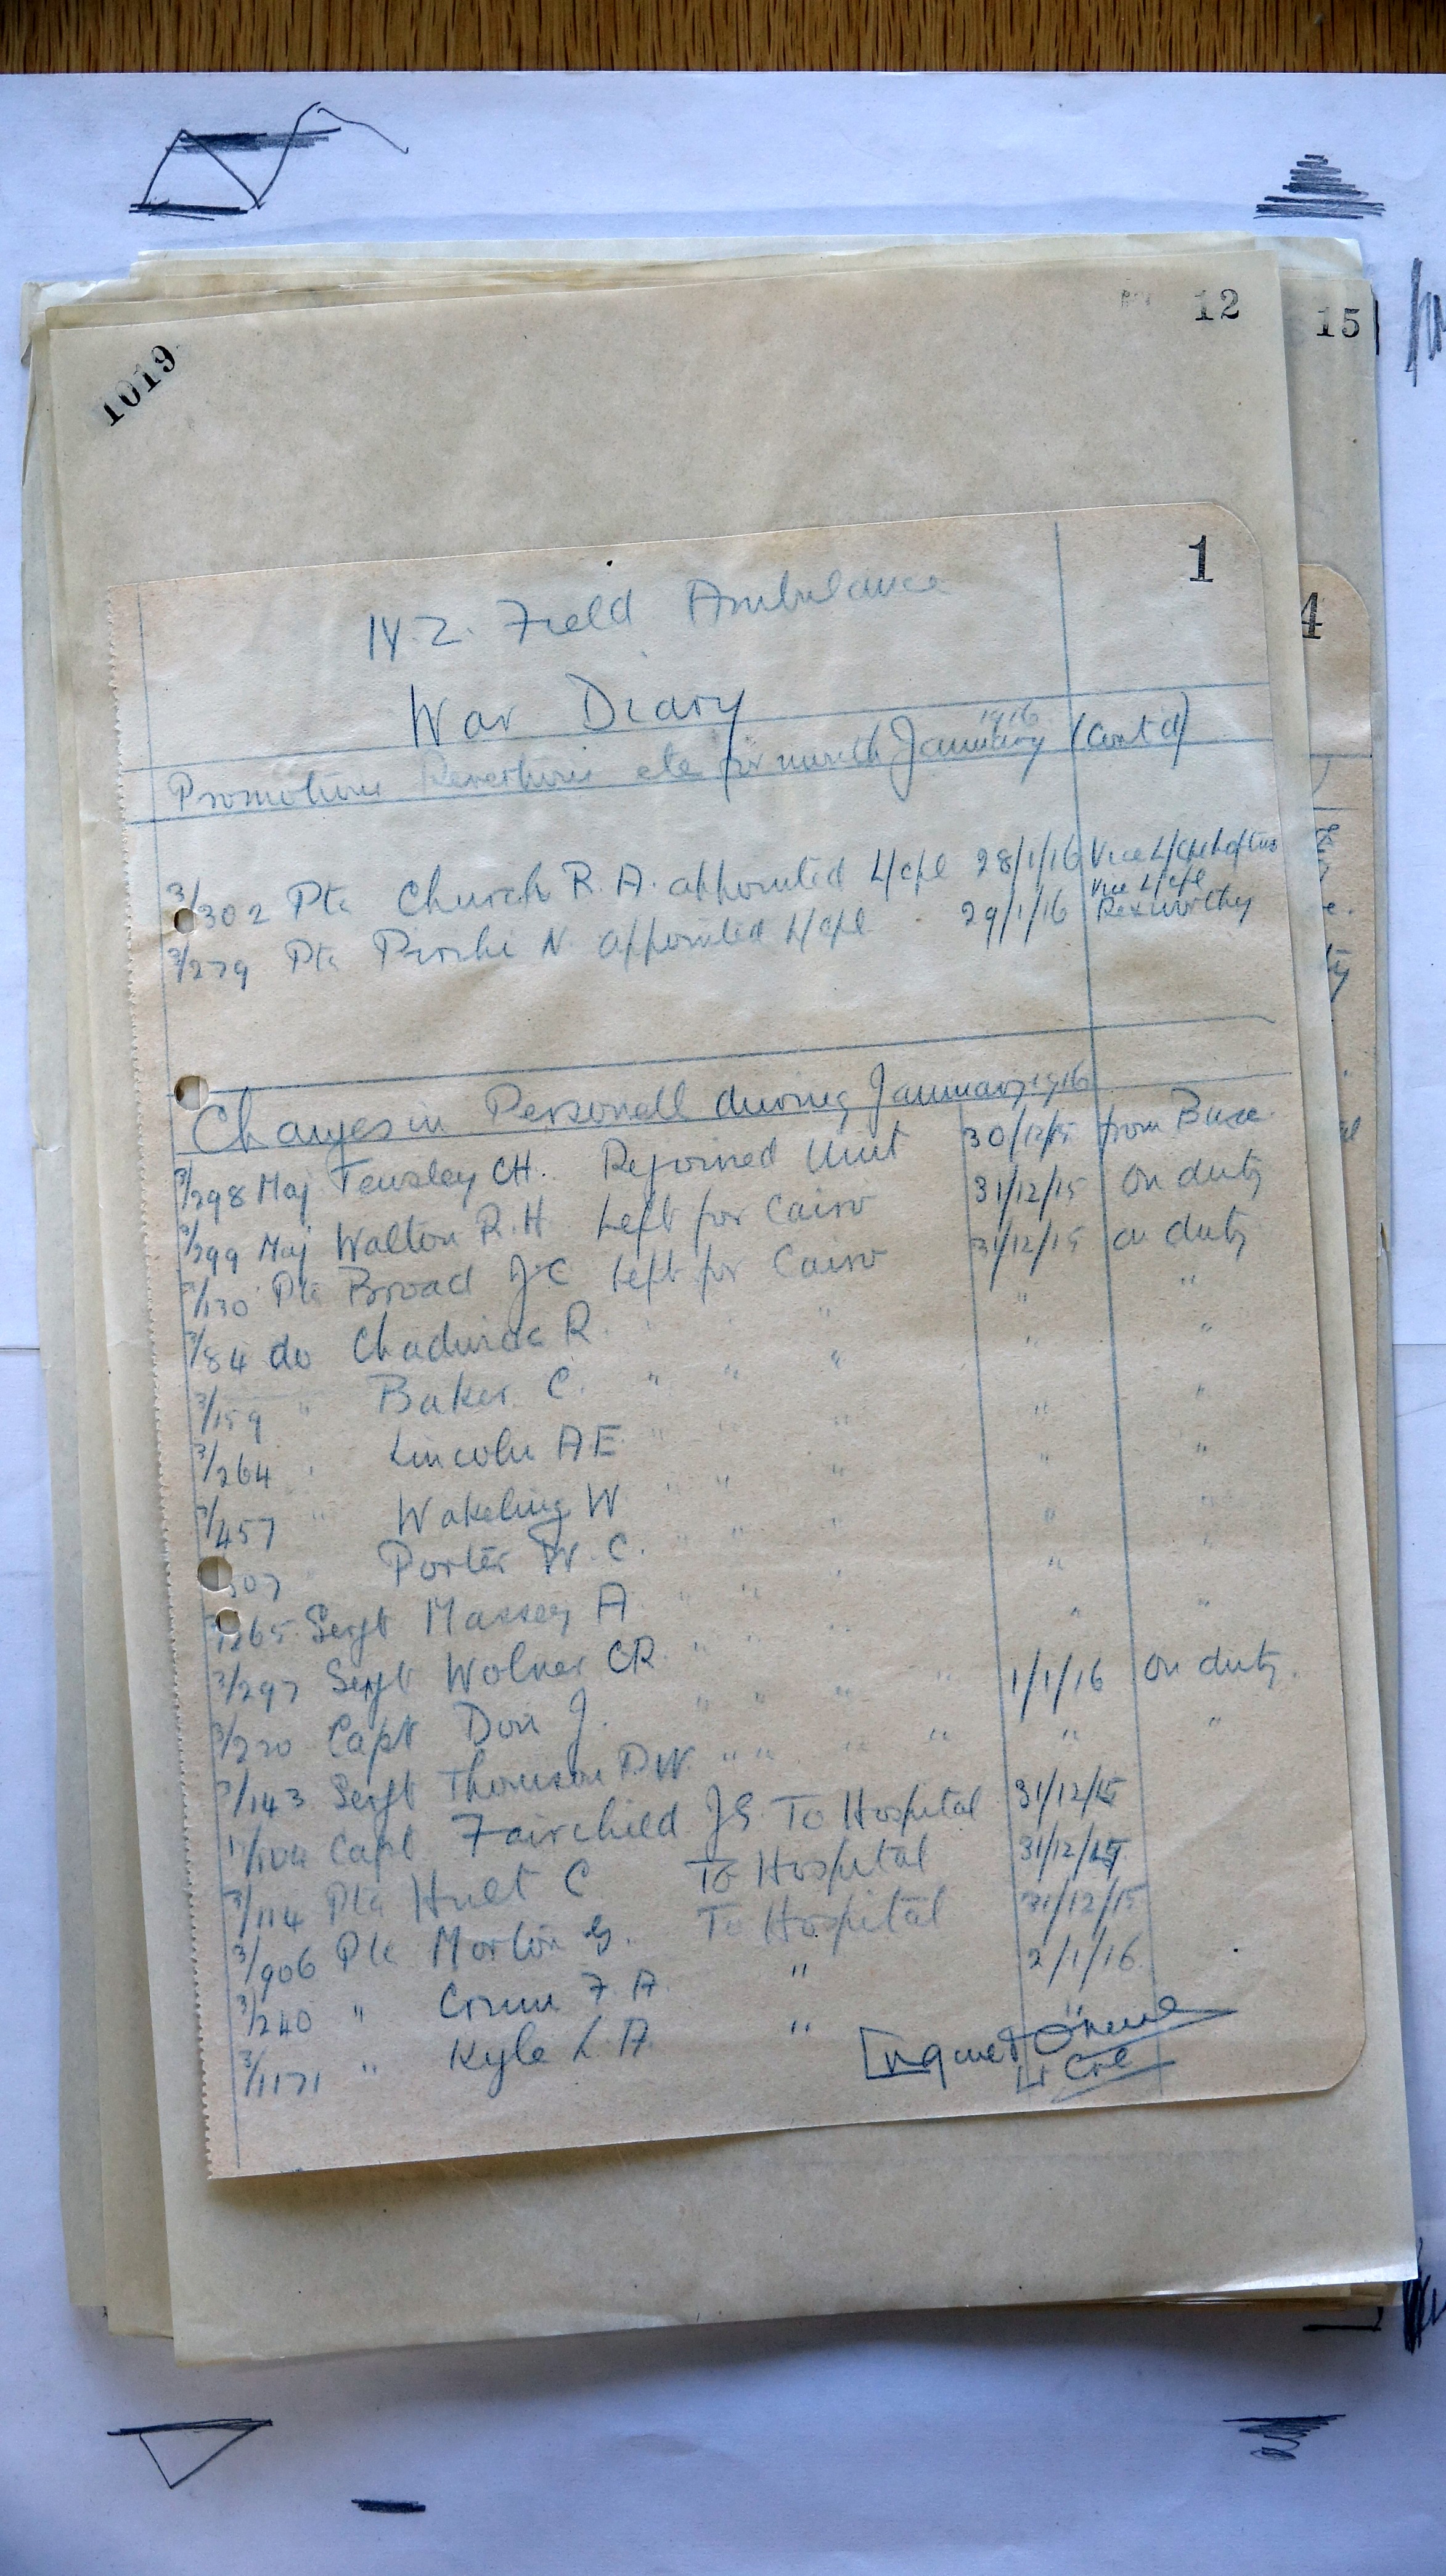 12
15
1019
1
4
Field Ambulance
War Diary
Promotions etc for month January 1916 (Cont'd)
3/302 Pte Church R. A. appointed L/Cpl 28/1/16 Vice L/Cpl Loftus
3/279 Pte N appointed L/Cpl 29/1/16 Vice L/Cpl Rexworthy
Changes in Personell during January 1916
3/298 Maj Tewsley CH. Rejoined Unit 30/12/15 from Base
3/299 Maj Walton R.H Left for Cairo 31/12/15 On duty
3/130 Pte Broad J.C Left for Cairo 31/12/15 on duty
3/84 do Chadwick R. " " "
3/159 " Baker C. " " " " "
3/264 " Lincoln AE " " " " "
3/457 " Wakeling W " " " " "
Porter W. C. " " " " "
Sergt Massey A " " " " "
3/297 Sergt Wolner CR " " " " "
3/220 Capt Don J. " " " " 1/1/16 On duty.
3/143 Sergt Thomson P.W. " " " " " "
Capt Fairchild JG. To Hospital 31/12/15
3/114 Pte Hult C To Hospital 31/12/15
3/906 Pte Morton G. To Hospital 31/12/15
3/240 " F A. " 2/1/16
3/1171 " Kyle L. A. " "
Lt Col